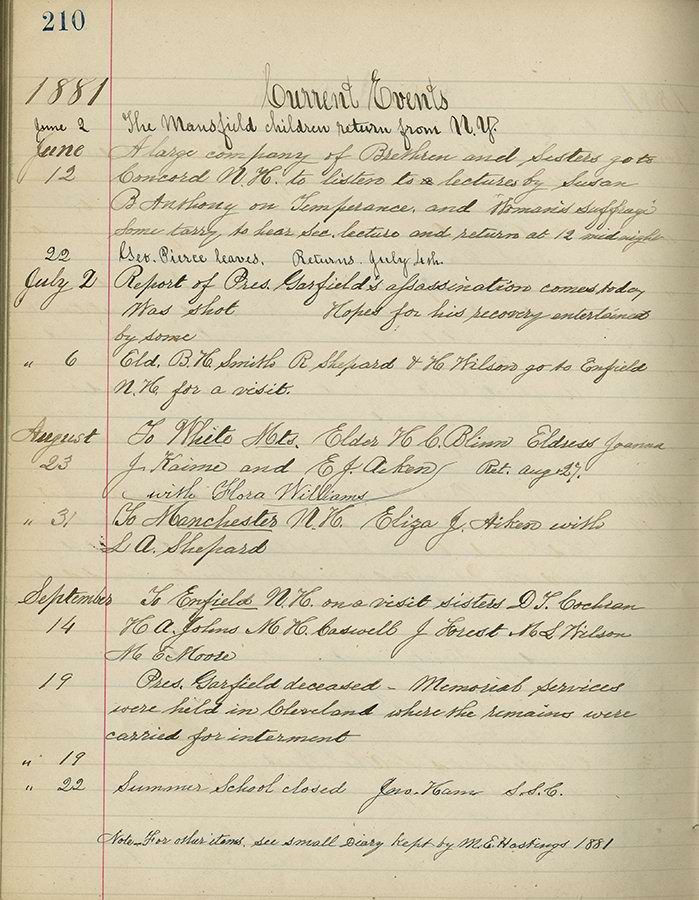 210
1881 Current Events
June 2 The Mansfield children return from N.Y.
June A large company of Brethren and Sisters go to
12 Concord N.H. to listen to a lectures by Susan
B Anthony on Temperance. and "Woman's Suffrage"
Some tarry to hear Sec. lecture and return at 12 midnight
22 Geo. Pierce leaves. Returns. July 4th.
July 2 Report of Pres. Garfield's assassination comes today
Was shot Hopes for his recovery entertained
by some
" 6 Eld. B. H. Smith R Shepard & H. Wilson go to Enfield
N.H. for a visit.
August To White Mts. Elder H C. Blinn Eldress Joanna
23 J. Kaime and E. J. Aiken Ret. Aug. 27.
with Flora Williams
" 31 To Manchester N.H. Eliza J. Aiken with
L A. Shepard
September To Enfield N.H. on a visit sisters D T. Cochran
14 H A. Johns M H. Caswell J Forest M L Wilson
M E Moore
19 Pres. Garfield deceased – Memorial services
were held in Cleveland where the remains were
carried for interment
" 19
" 22 Summer School closed Jno. Ham S.S.C.
Note – For other items, see small Diary kept by M. E. Hastings 1881